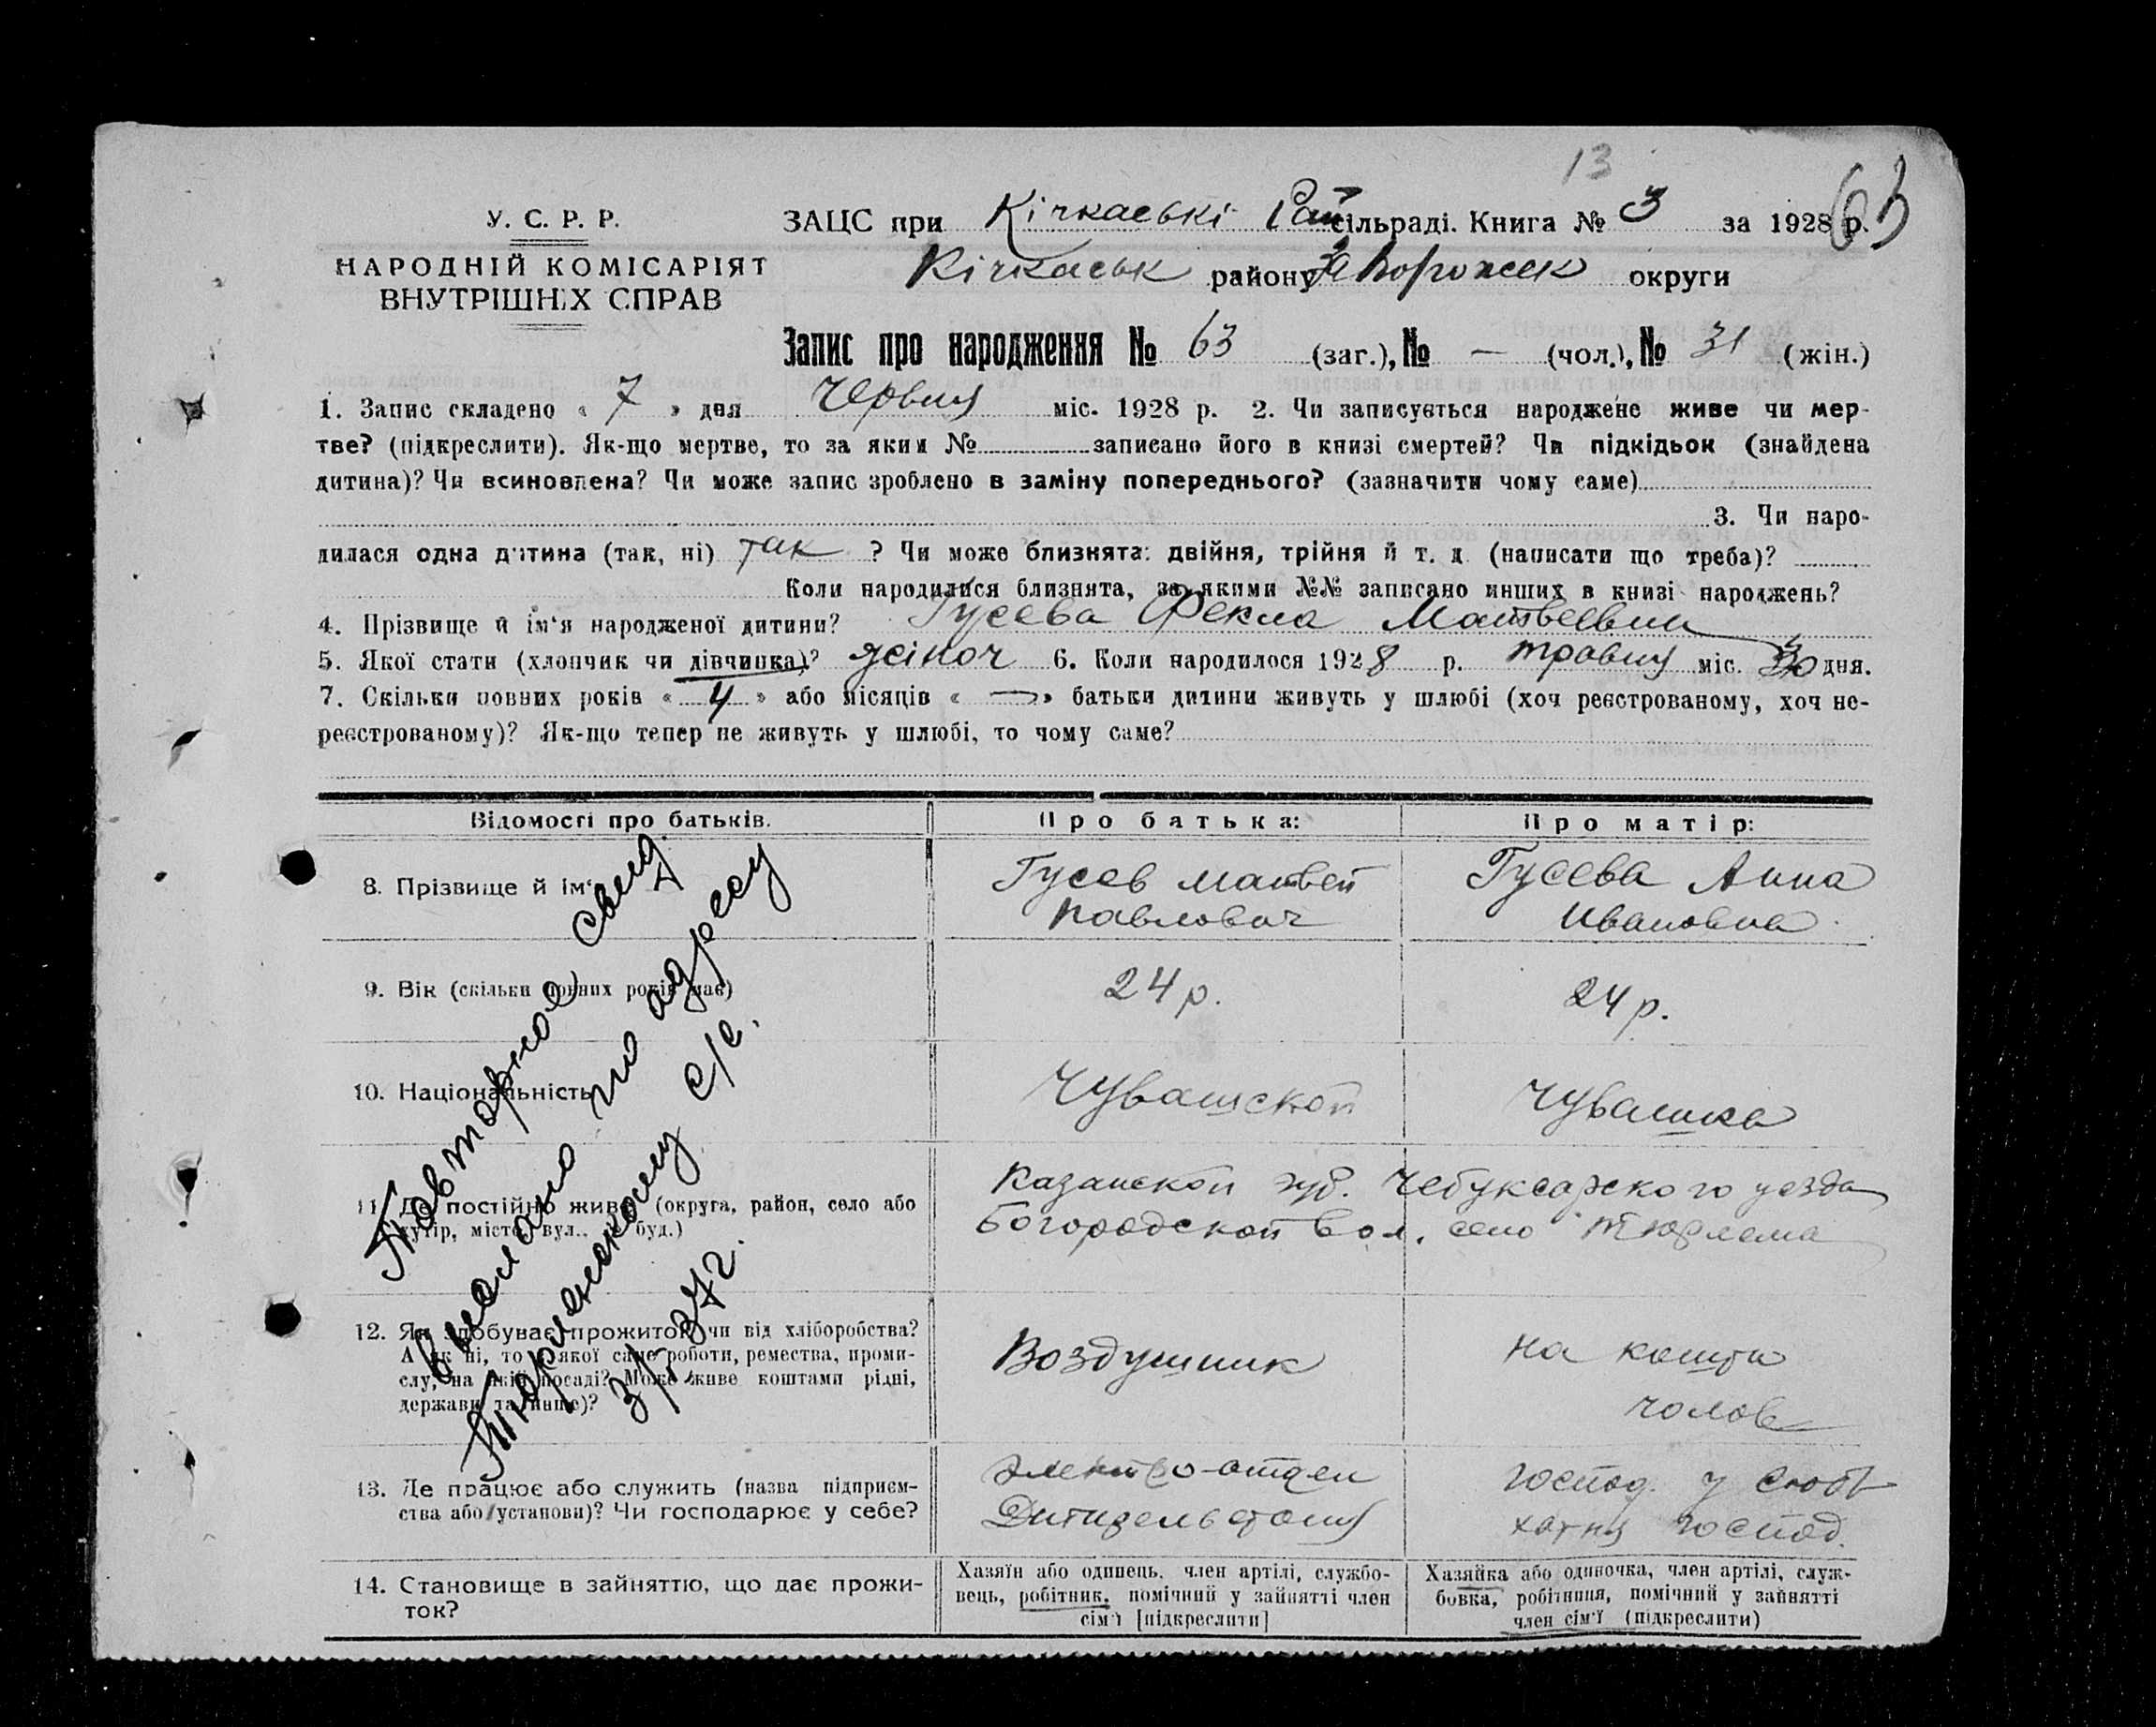 13
63
У. С. Р. Р.
НАРОДНІЙ КОМІСАРІЯТ
ВНУТРІШНІХ СПРАВ
ЗАЦС при Кічкаські Рай сільраді. Книга № 3 за 1928 р.
Кічкаськ району Запорожск округи
Запис про народження № 63 (заг.), № — (чол.), № 31 (жін.)
1. Запис складено « 7 » дня червня міс. 1928 р. 2. Чи записується народжене живе чи мер-
тве? (підкреслити). Як-що мертве, то за яким № записано його в книзі смертей? Чи підкідьок (знайдена
дитина)? Чи всиновлена? Чи може запис зроблено в заміну попереднього? (зазначити чому саме)
3. Чи наро-
дилася одна дитина (так, ні) так ? Чи може близнята: двійня, трійня й т. д. (написати що треба)?
Коли народилися близнята, за якими №№ записано инших в книзі народжень?
4. Прізвище й ім'я народженої дитини? Гусева Фекла Матвеевна
5. Якої стати (хлопчик чи дівчинка)? жіноч 6. Коли народилося 1928 р. травня міс. 30 дня.
7. Скільки повних років « 4 » або місяців « — » батьки дитини живуть у шлюбі (хоч реєстрованому, хоч не-
реєстрованому)? Як-що тепер не живуть у шлюбі, то чому саме?
Відомості про батьків. Про батька: Про матір:
8. Прізвище й ім'я Гусев Матвей Гусева Анна
Павлович Ивановна
9. Вік (скільки повних років має) 24 р. 24 р.
10. Національність Чувашской Чувашка
11. Де постійно живе (округа, район, село або Казанской губ. Чебуксарского уезда
хутір, місто, вул., буд.) Богородской вол. село Тюрлема
12. Як здобуває прожиток чи від хліборобства? Воздушник на кошти
А як ні, то з якої саме роботи, ремества, проми- чолов
слу, на якій посаді? Може живе коштами рідні,
держави та инше)?
13. Де працює або служить (назва підприєм- Электро-отдел господ. у
ства або установи)? Чи господарює у себе? хатня господ.
14. Становище в зайняттю, що дає прожи-
ток?
Хазяїн або одинець, член артілі, службо-
вець, робітник, помічний у зайнятті член
сім'ї [підкреслити]
Хазяйка або одиночка, член артілі, служ-
бовка, робітниця, помічний у зайнятті
член сім'ї (підкреслити)
Повторное свид
выслано по адресу
Тюрлемскому с/с.